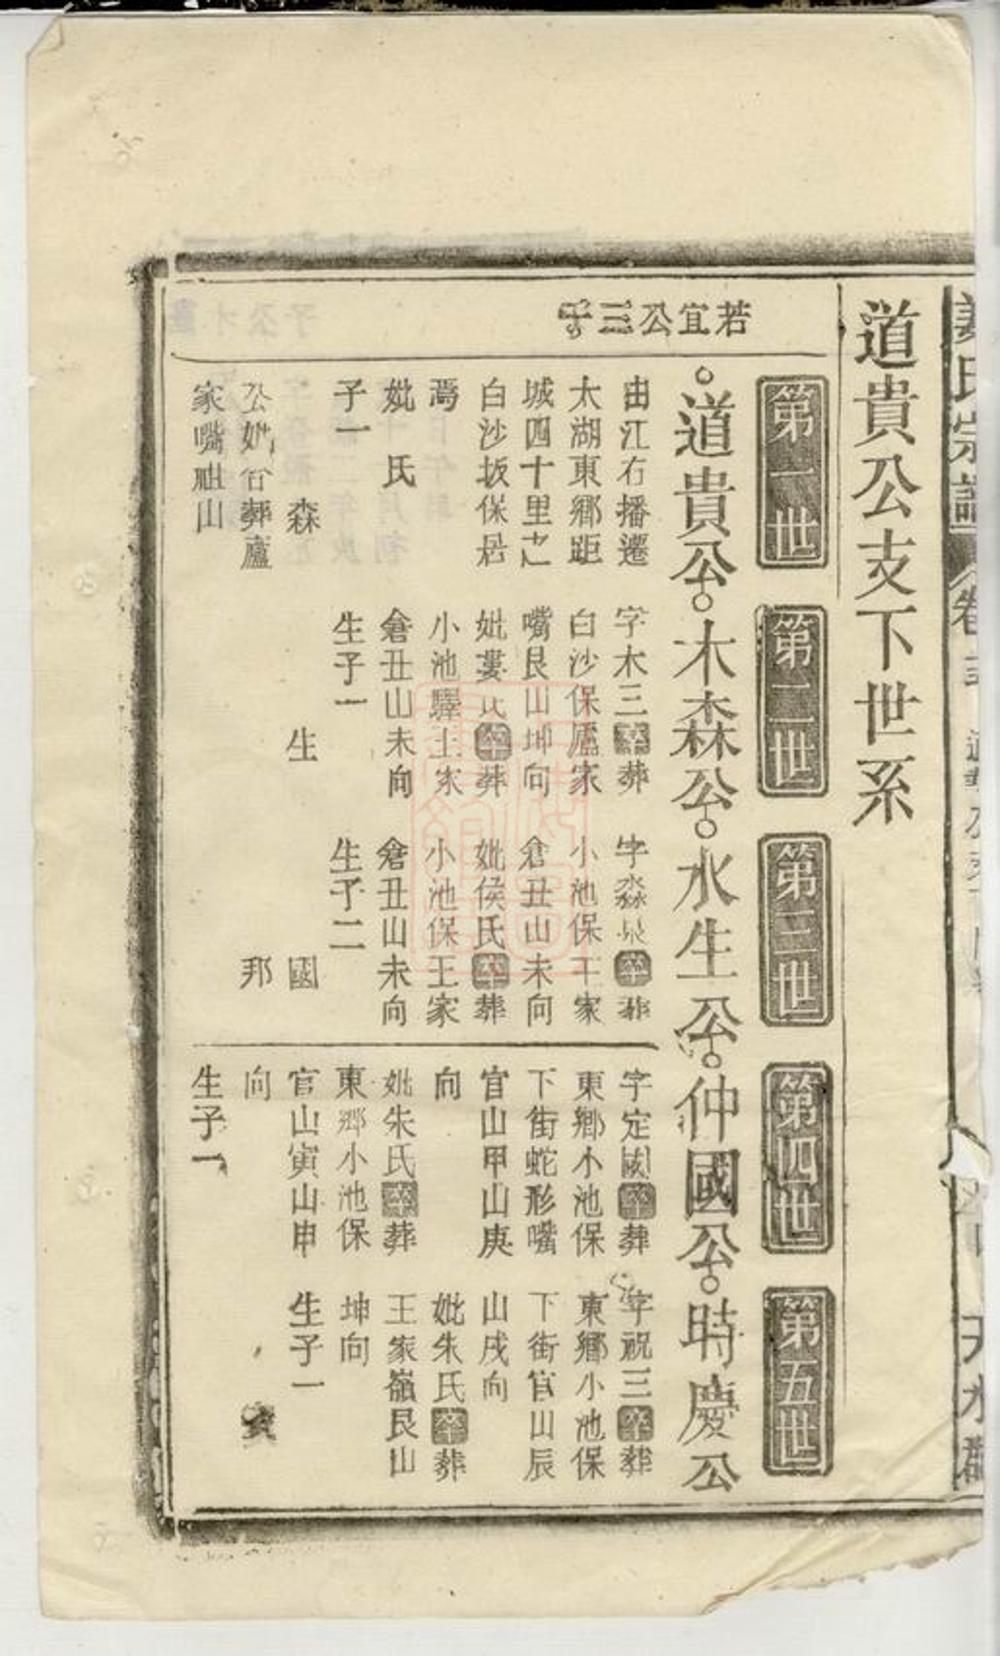 姜氏宗譜
卷
天水郡
道貴公支下世系
第一世
第二世
第三世
第四世
第五世
若宜公三子
道貴公
木森公
水生公
仲國公
時慶公
由江右播遷
太湖東鄉距
城四十里之
白沙坂保居
焉
妣 氏
子一
森
公妣合葬廬
家嘴祖山
字木三卒葬
白沙保廬家
嘴艮山坤向
妣婁氏卒葬
小池驛王家
倉丑山未向
生子一
生
字淼泉卒葬
小池保王家
倉丑山未向
妣侯氏卒葬
小池保王家
倉丑山未向
生子二
國
邦
字定國卒葬
東鄉小池保
下街蛇形嘴
官山甲山庚
向
妣朱氏卒葬
東鄉小池保
官山寅山申
向
生子一
字祝三卒葬
東鄉小池保
下街官山辰
山戌向
妣朱氏卒葬
王家嶺艮山
坤向
生子一